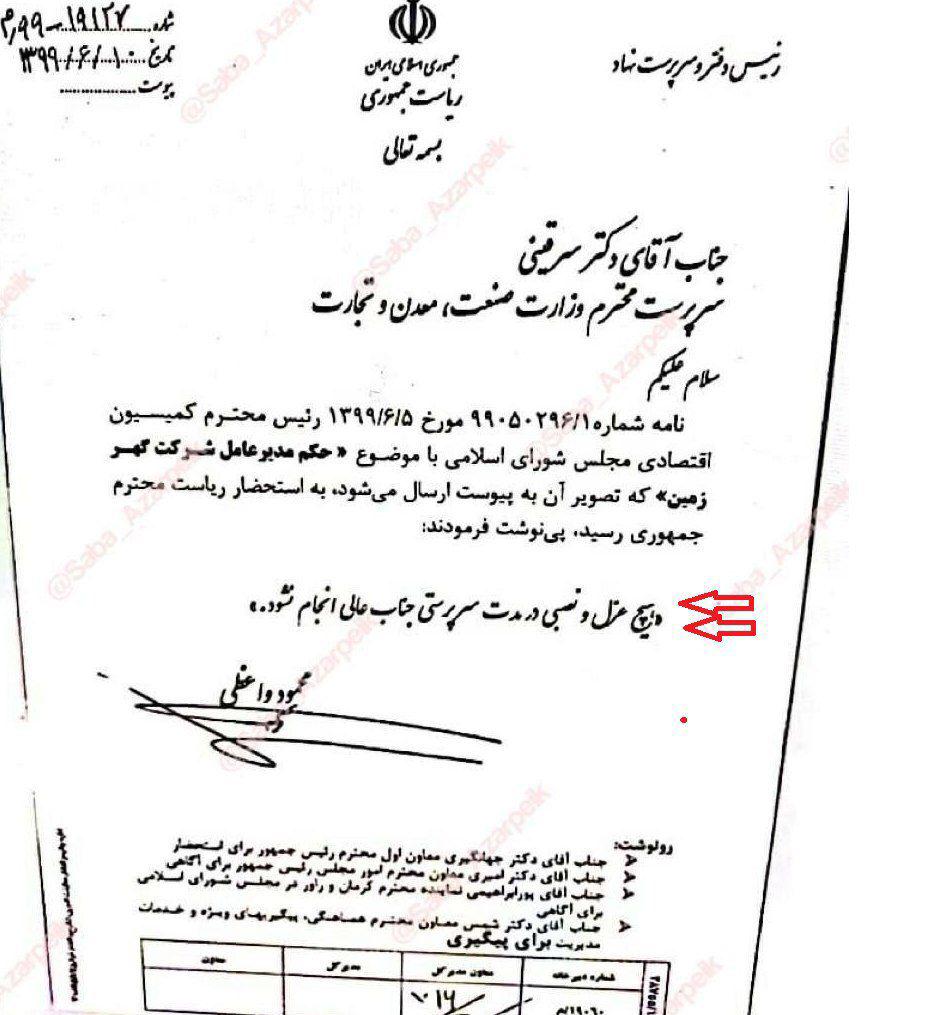 شماره ۱۹۱۲۷-م/۹۹
تاریخ ۱۳۹۹/۶/۱۰
پیوست
جمهوری اسلامی ایران
ریاست جمهوری
رئیس دفتر و سرپرست نهاد
بسمه تعالی
جناب آقای دکتر سرقینی
سرپرست محترم وزارت صنعت، معدن و تجارت
سلام علیکم
نامه شماره ۹۹۰۵۰۲۹۶/۱ مورخ ۱۳۹۹/۶/۵ رئیس محترم کمیسیون
اقتصادی مجلس شورای اسلامی با موضوع «حکم مدیرعامل شرکت گهر
زمین» که تصویر آن به پیوست ارسال می‌شود، به استحضار ریاست محترم
جمهوری رسید، پی‌نوشت فرمودند:
«هیچ عزل و نصبی در مدت سرپرستی جناب عالی انجام نشود.»
محمود واعظی
رونوشت:
جناب آقای دکتر جهانگیری معاون اول محترم رئیس جمهور برای استحضار
جناب آقای دکتر امیری معاون محترم امور مجلس رئیس جمهور برای آگاهی
جناب آقای پورابراهیمی نماینده محترم کرمان و راور در مجلس شورای اسلامی
برای آگاهی
جناب آقای دکتر شمس معاون محترم هماهنگی، پیگیریهای ویژه و خدمات
مدیریت برای پیگیری
شماره دبیرخانه
معاون مدیرکل
مدیرکل
معاون
@Saba_Azarpeik